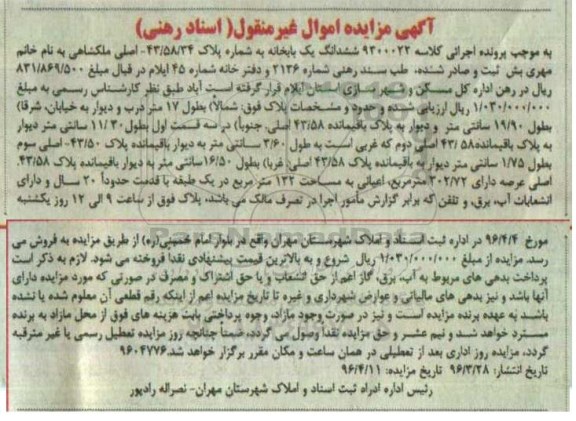 آگهی مزایده اموال غیرمنقول( اسناد رهنی)
به موجب پرونده اجرائی کلاسه ۹۳۰۰۰۲۲ ششدانگ یک بابخانه به شماره پلاک ۴۳/۵۸/۳۴- اصلی ملکشاهی به نام خانم
مهری بش ثبت و صادر شنده، طب سند رهنی شماره ۲۱۳۶ و دفتر خانه شماره ۴۵ ایلام در قبال مبلغ ۸۳۱/۸۶۹/۵۰۰
ریال در رهن اداره کل مسکن و شهرسازی استان ایلام قرار گرفته است آباد طبق نظر کارشناس رسمی به مبلغ
۱/۰۳۰/۰۰۰/۰۰۰ ریال ارزیابی شده و حدود و مشخصات پلاک فوق: شمالاً) بطول ۱۷ متر درب و دیوار به خیابان، شرقا)
بطول ۱۹/۹۰ سانتی متر و دیوار به پلاک باقیمانده ۴۳/۵۸ اصلی، جنوبا) در سه قسمت اول بطول ۱۱/۳۰ سانتی متر دیوار
به پلاک باقیمانده ۴۳/۵۸ اصلی دوم که غربی است به طول ۳/۶۰ سانتی متر به دیوار باقیمانده پلاک ۴۳/۵۰- اصلی سوم
بطول ۱/۷۵ سانتی متر دیوار به باقیمانده پلاک ۴۳/۵۸ اصلی؛ غربا) بطول ۱۶/۵۰ سانتی متر به دیوار باقیمانده پلاک ۴۳/۵۸.
اصلی عرصه دارای ۳۰۲/۷۲ مترمربع، اعیانی به مساحت ۱۳۲ متر مربع در یک طبقه با قدمت حدوداً ۲۰ سال و دارای
انشعابات آب، برق، و تلفن که برابر گزارش مأمور اجرا در تصرف مالک می باشد، پلاک فوق از ساعت ۹ الی ۱۲ روز یکشنبه
مورخ ۹۶/۴/۴ در اداره ثبت اسناد و املاک شهرستان مهران واقع در بلوار امام خمینی(ره) از طریق مزایده به فروش می
رسد. مزایده از مبلغ ۱/۰۳۰/۰۰۰/۰۰۰ ریال شروع و به بالاترین قیمت پیشنهادی نقدا فروخته می شود. لازم به ذکر است
پرداخت بدهی های مربوط به آب، برق، گاز اعم از حق انشعاب و یا حق اشتراک و مصرف در صورتی که مورد مزایده دارای
آنها باشد و نیز بدهی های مالیاتی و عوارض شهرداری و غیره تا تاریخ مزایده اعم از اینکه رقم قطعی آن معلوم شده یا نشده
باشد به عهده برنده مزایده است و نیز در صورت وجود مازاد، وجوه پرداختی بابت هزینه های فوق از محل مازاد به برنده
مسترد خواهد شد و نیم عشر و حق مزایده نقدا وصول می گردد، ضمنا چنانچه روز مزایده تعطیل رسمی یا غیر مترقبه
گردد، مزایده روز اداری بعد از تعطیلی در همان ساعت و مکان مقرر برگزار خواهد شد.۹۶۰۴۷۷۶
تاریخ انتشار: ۹۶/۳/۲۸ تاریخ مزایده: ۹۶/۴/۱۱
رئیس اداره ادراه ثبت اسناد و املاک شهرستان مهران- نصراله رادپور